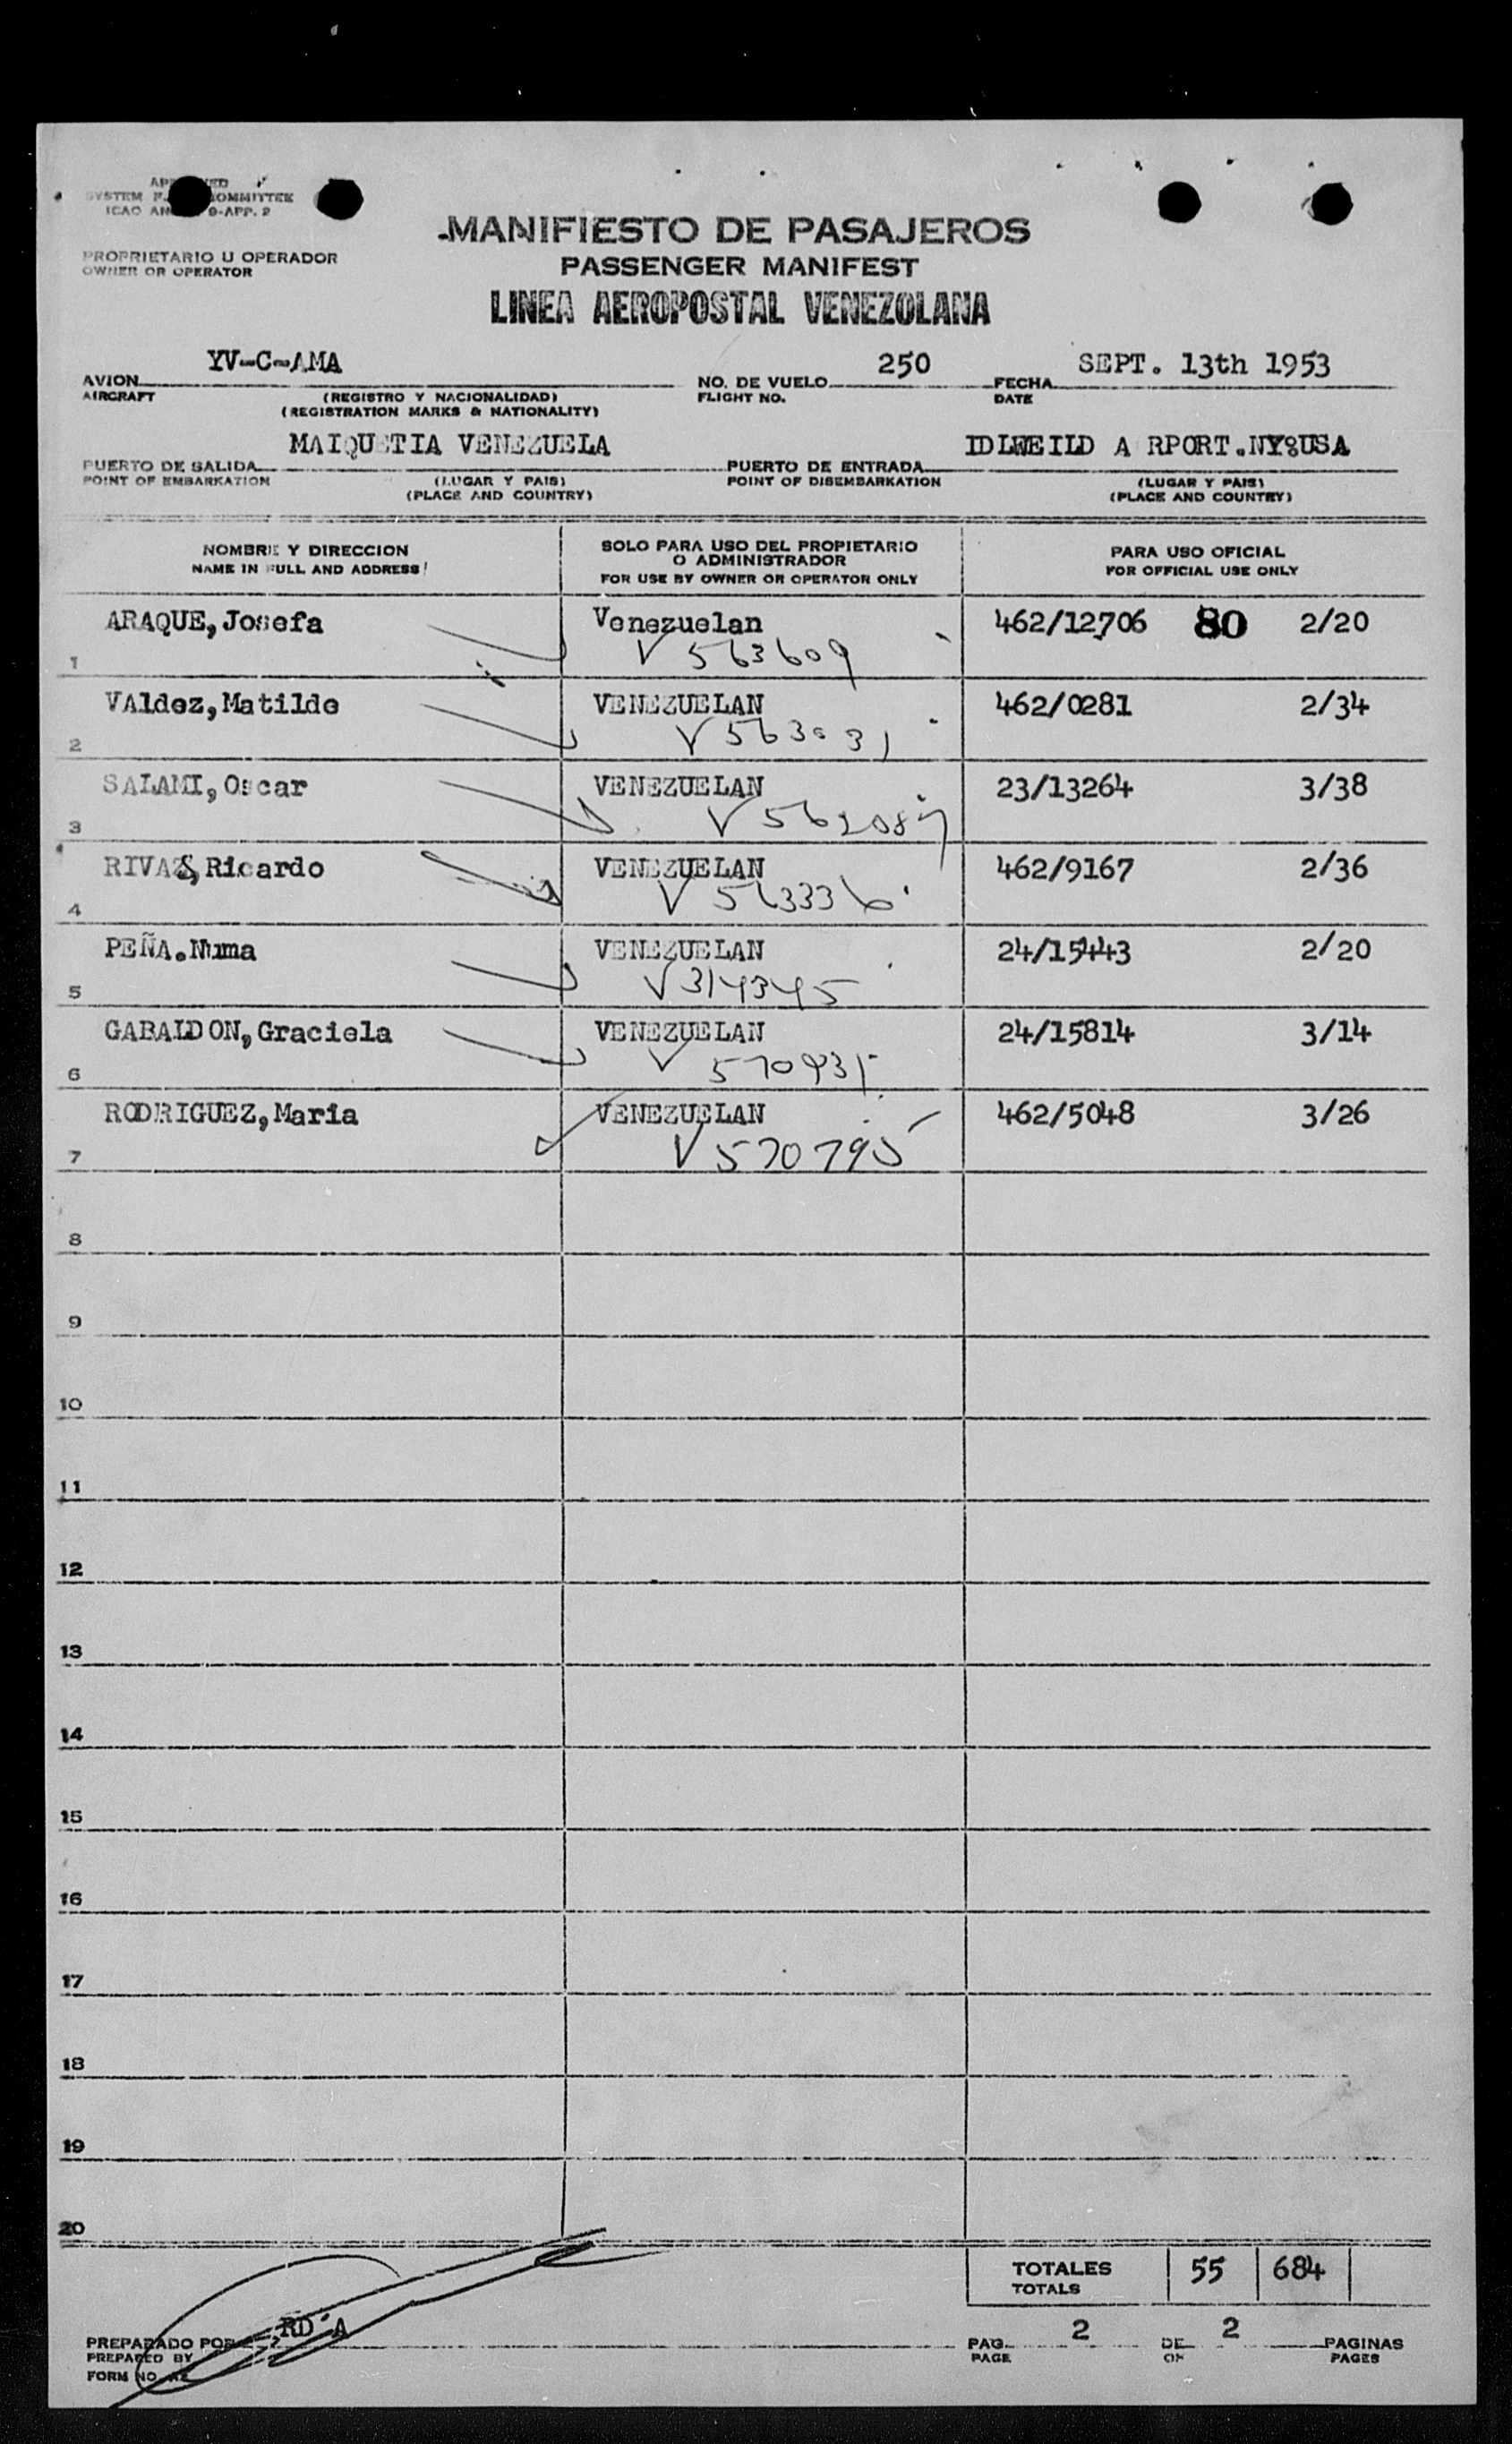 SYSTEM COMMITTEE
ICAO 9-APP. 2
PROPRIETARIO U OPERADOR
OWNER OR OPERATOR
MANIFIESTO DE PASAJEROS
PASSENGER MANIFEST
LINEA AEROPOSTAL VENEZOLANA
YV-C-AMA 250 SEPT. 13th 1953
AVION NO. DE VUELO FECHA
AIRCRAFT (REGISTRO Y NACIONALIDAD) FLIGHT NO. DATE
(REGISTRATION MARKS & NATIONALITY)
MAIQUETIA VENEZUELA IDLWEILD A RPORT.NY&USA
PUERTO DE SALIDA PUERTO DE ENTRADA
POINT OF EMBARKATION (LUGAR Y PAIS) POINT OF DISEMBARKATION (LUGAR Y PAIS)
(PLACE AND COUNTRY) (PLACE AND COUNTRY)
NOMBRE Y DIRECCION SOLO PARA USO DEL PROPIETARIO PARA USO OFICIAL
O ADMINISTRADOR
NAME IN FULL AND ADDRESS FOR USE BY OWNER OR OPERATOR ONLY FOR OFFICIAL USE ONLY
ARAQUE, Josefa Venezuelan 462/12706 80 2/20
1 V 563609
VAldez, Matilde VENEZUELAN 462/0281 2/34
2
SALAMI, Oscar VENEZUELAN 23/13264 3/38
3
RIVAS, Ricardo VENEZUELAN 462/9167 2/36
4 V 563336
PEÑA.Numa VENEZUELAN 24/15443 2/20
5 V 314345
GABALDON, Graciela VENEZUELAN 24/15814 3/14
6 V
RODRIGUEZ, Maria VENEZUELAN 462/5048 3/26
7 V 570795
8
9
10
11
12
13
14
15
16
17
18
19
20
TOTALES 55 684
TOTALS
RD'A
PREPARADO POR PAG. 2 DE 2 PAGINAS
PREPARED BY PAGE OF PAGES
FORM NO.